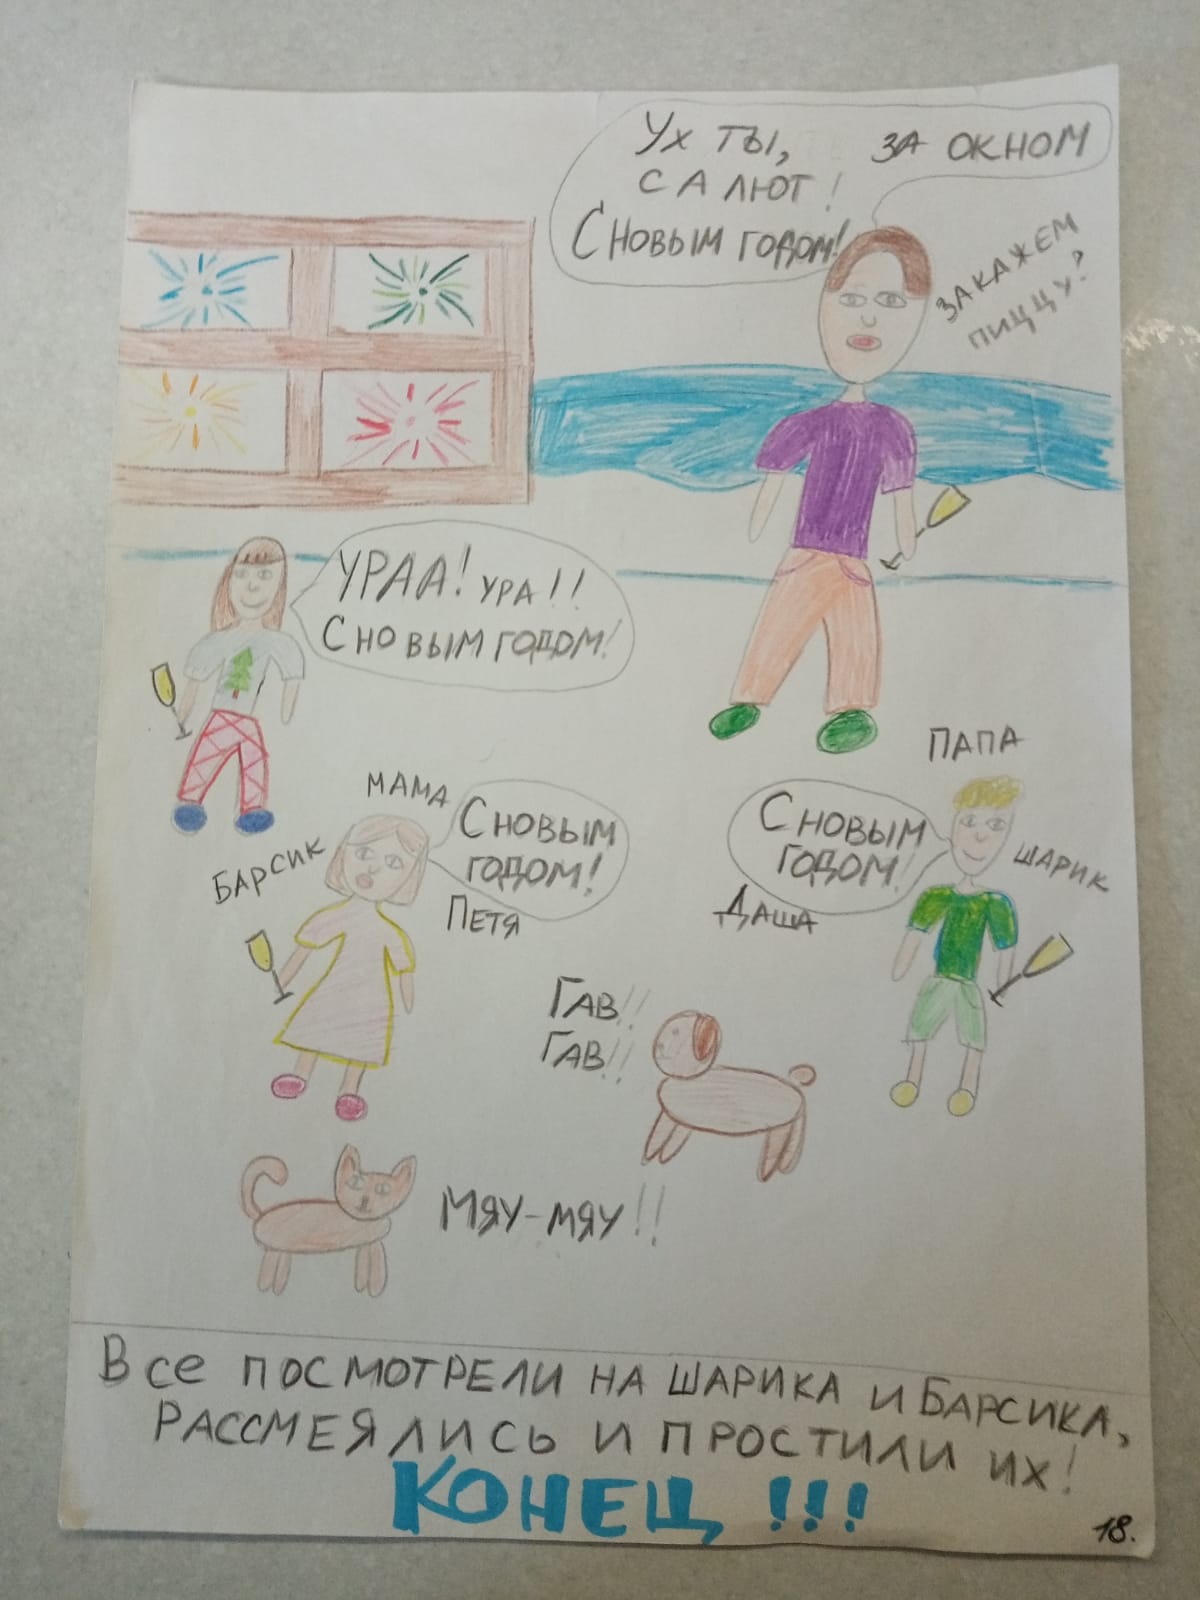 Ух ты, за окном
салют!
С новым годом!
закажем
пиццу?
УРАА! УРА!!
С новым годом!
папа
мама
С новым
годом!
С новым
годом!
Барсик
Шарик
Петя
Даша
Гав!!
Гав!!
Мяу-мяу!!
Все посмотрели на Шарика и Барсика,
рассмеялись и простили их!
КОНЕЦ!!!
18.